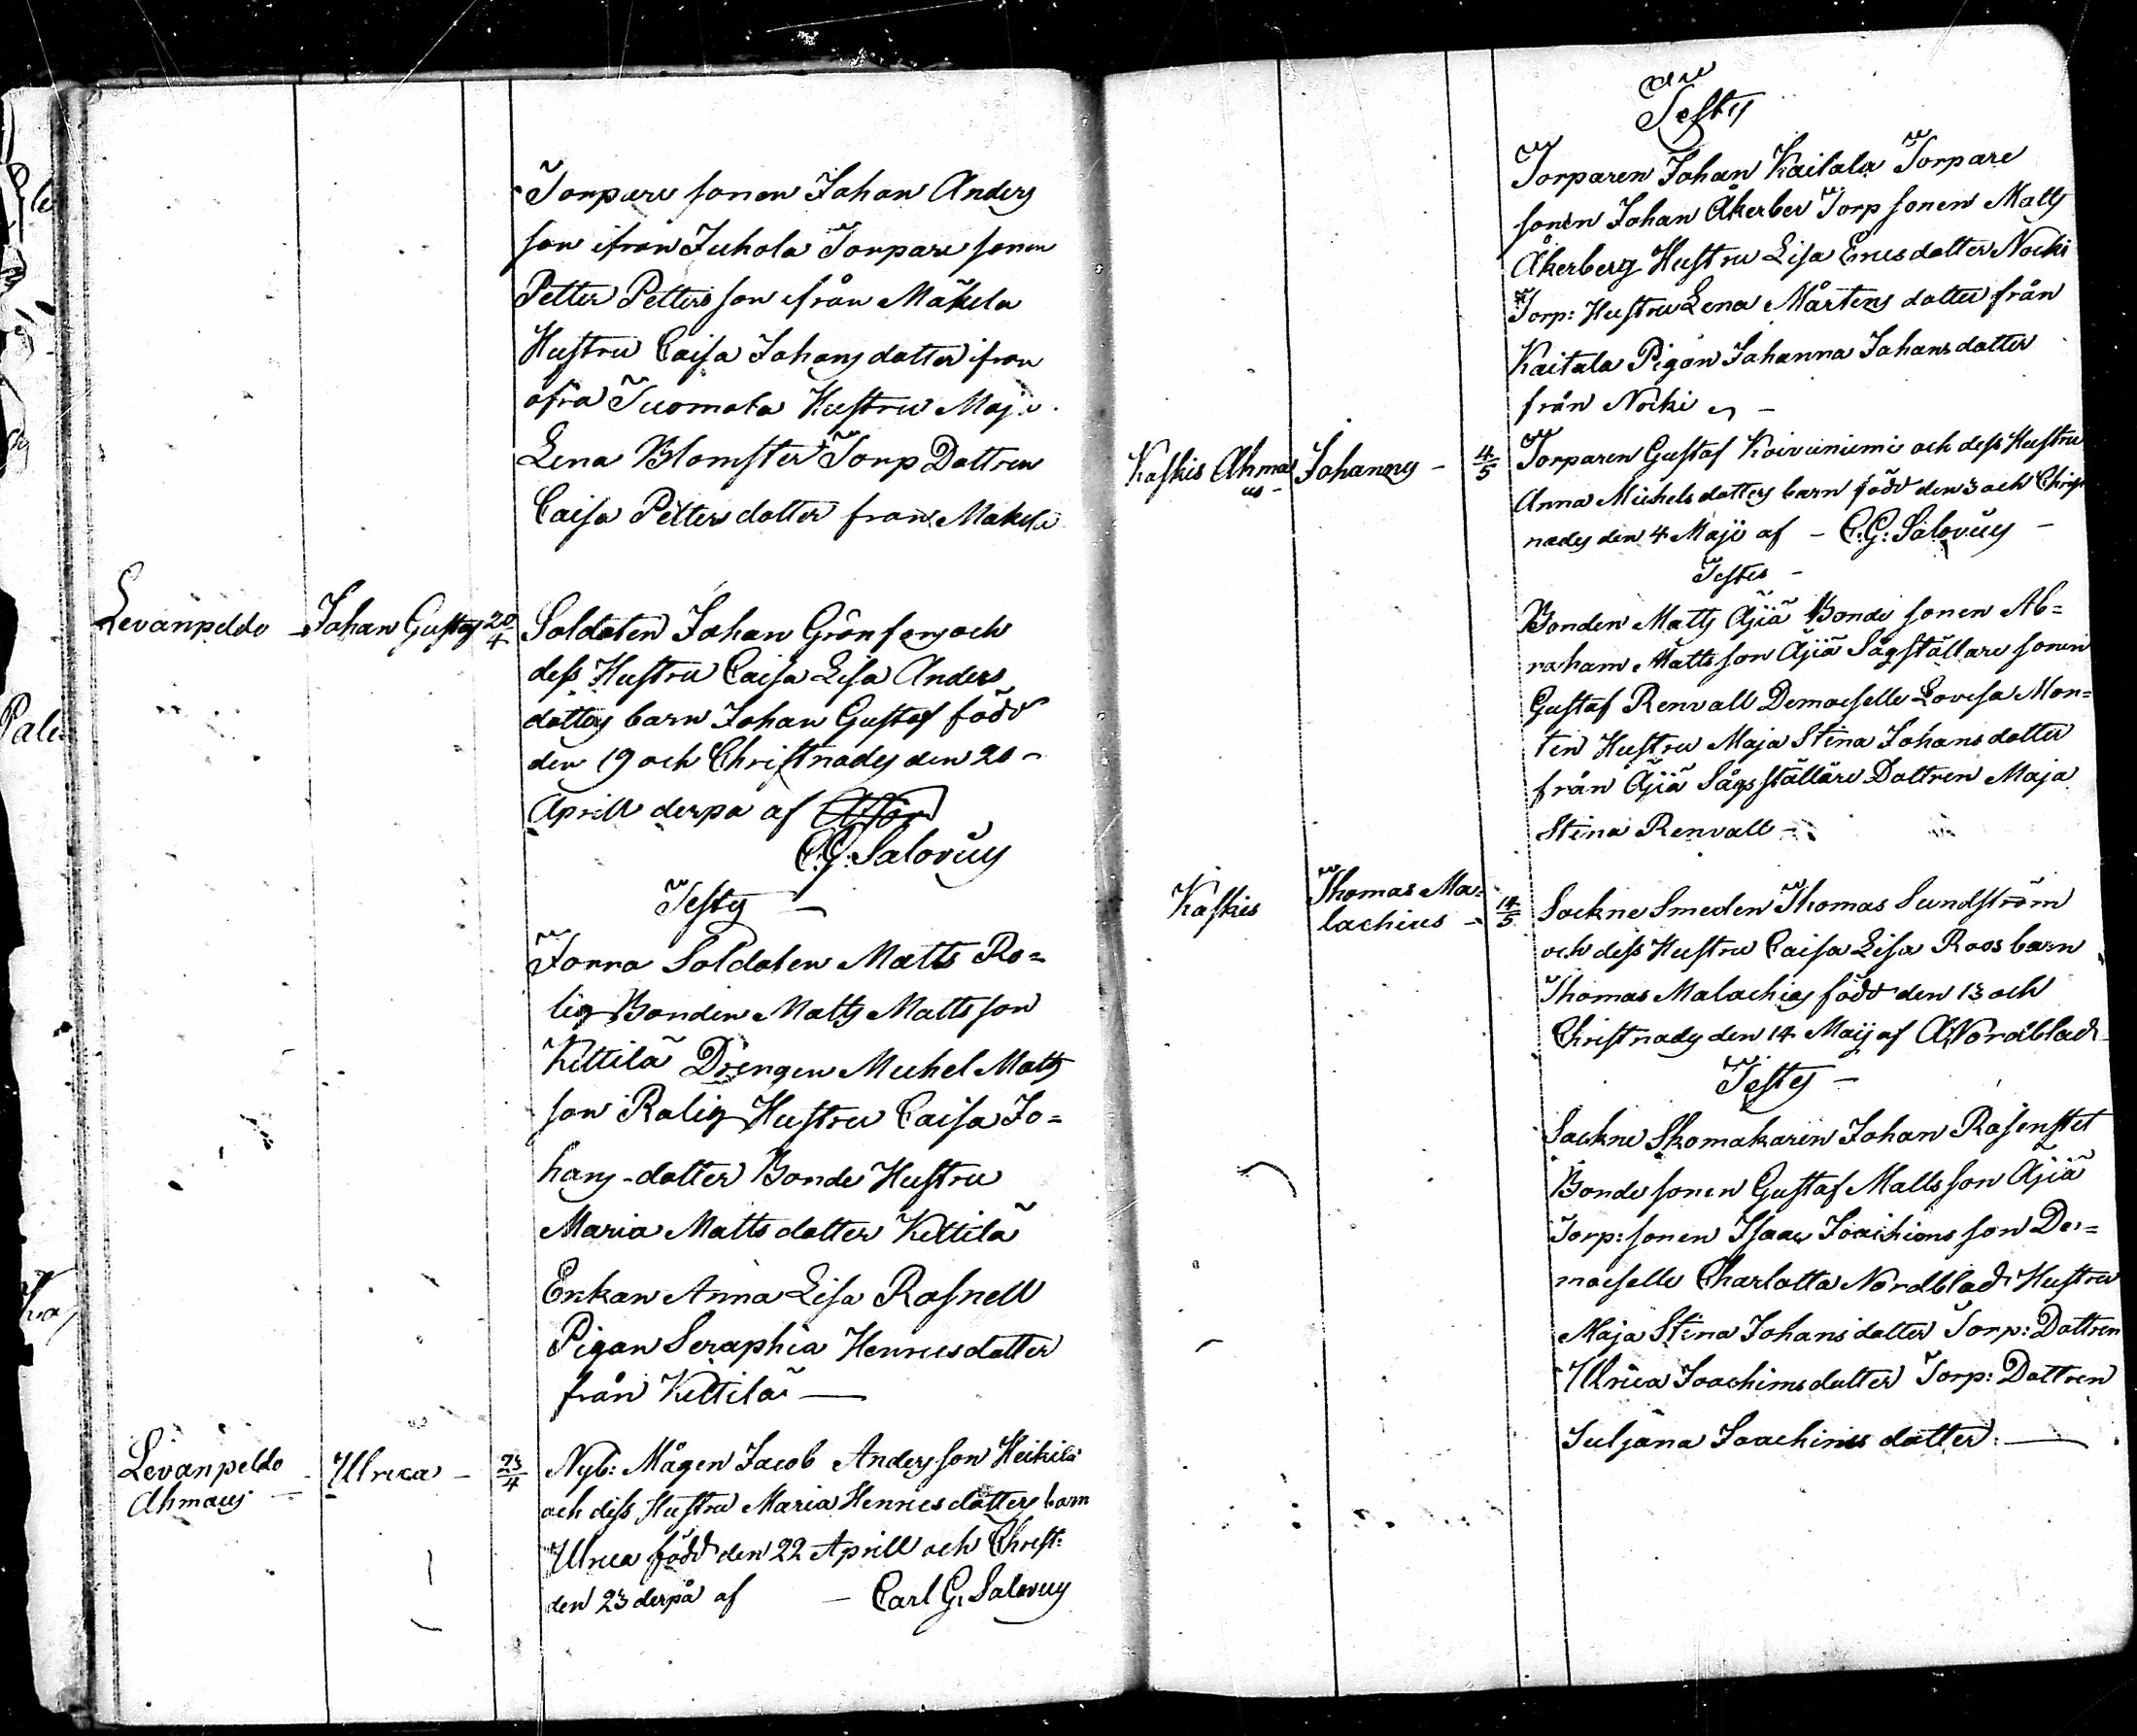 Torpare sonen Johan Anders
son ifrån Juhola Torpare sonen
Petter Pettersson ifrån Mäkela
Hustru Caisa Johans dotter ifrån
öfra Tuomala Hustru Maja
Lena Blomster Torp Dottren
Caisa Petters dotter från Makela
Levänpeldo – Johan Gustaf 20/4 Soldaten Johan Grönfors och
dess Hustru Caisa Lisa Anders
dotters barn Johan Gustaf född
den 19 och Christnades den 20 –
Aprill derpa af
C.G. Salovius
Testes –
Forra Soldaten Matts Ro=
lig Bonden Matts Mattsson
Kittilä Drengen Michel Matts
son Rolig Hustru Caisa Jo=
hans-dotter Bonde Hustru
Maria Mattsdotter Kittilä
Enkan Anna Lisa Rosnell
Pigan Seraphia Henricsdotter
från Kittilä —
Levänpeldo Ahmaus – Ulrica – 23/4 Nyb: Mågen Jacob Andersson Heikilä
och dess Hustru Maria Henricsdotters barn
Ulrica född den 22 Aprill och Christ:
den 23 derpå af – Carl G. Salovius
Testes
Torparen Johan Kaitala Torpare
sonen Johan Åkerber Torp sonen Matts
Åkerberg Hustru Lisa Ericsdotter Nocki
Torp: Hustru Lena Mårtens dotter från
Kaitala Pigan Johanna Johansdotter
från Nocki –
Kaskis Ahmaus – Johannes – 4/5 Torparen Gustaf Koivuniemi och dess Hustru
Anna Michelsdotters barn född den 3 och Christ
nades den 4 Maji af – C.G. Salovius –
Testes –
Bonden Matts Äjiä Bonde sonen Ab=
raham Mattsson Äjiä Sågställare sonen
Gustaf Renvall Demoiselle Lovisa Mon=
tin Hustru Maja Stina Johansdotter
från Äjiä Sågsställare Dottren Maja
Stina Renvall –
Kaskis Thomas Ma=lachius – 14/5 Sockne Smeden Thomas Sundström
och dess Hustru Caisa Lisa Roos barn
Thomas Malachias född den 13 och
Christnades den 14 Maij af A. Nordblad
Testes –
Sockne Skomakaren Johan Rosenstet
Bonde sonen Gustaf Mattsson Äjiä
Torp: sonen Isaac Joachimsson De=
moiselle Charlotta Nordblad Hustru
Maja Stina Johansdotter Torp: Dottren
Ulrica Joachimsdotter Torp: Dottren
Juljana Joachimsdotter. —